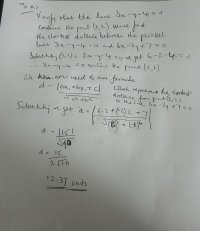 Verify that the line 3x-y-4=0
contains the point (2,2) hence find
the shortest distance between the parallel
lines 3x-y-4=0 and 6x-2y+7=0
Substitute (2,2) in 3x-y-4=0 we get 6-2-4=0
∴ 3x-y-4=0 contains the point (2,2)
We now need to use formula
d = |ax₁+by₁+c| which represent the shortest
√a²+b² distance from point (2,2)
to the line 6x-2y+7=0
Substituting we get d = |6·2+(-2)2+7|
√6²+(-2)²
d = |15|
√40
d = 15
2√10
=2.37 units